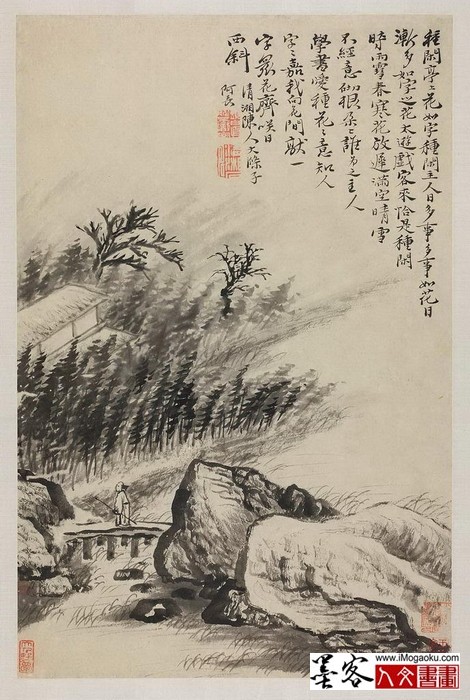 種閒亭上花如字種閒主人日多事多事如花日
漸多如字之花太遊戲客來恰是種閒
時雨雪春寒花放遲滿空晴雪
不經意砌根朵々誰為之主人
學書愛種花々意知人
字々嘉我向花間獻一
字眾花齊咲日
西斜 清湘陳人大滌子
阿長
墨客
www.iMogaoku.com
人文書畫